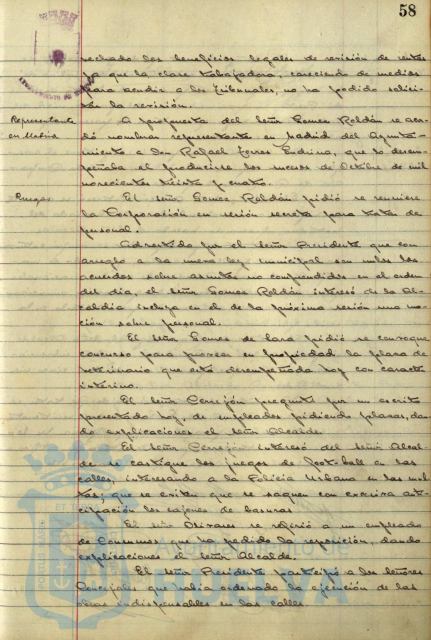 58
rechado los beneficios legales de revisión de rentas
ya que la clase trabajadora, careciendo de medios
para acudir a los Tribunales, no ha podido solici-
tar la revisión.
Representante
en Madrid
A propuesta del Señor Gomez Roldán se acor-
dó nombrar representante en Madrid del Ayunta-
miento a Don Rafael Torres Endrina, que lo desem-
peñaba al producirse los sucesos de Octubre de mil
novecientos treinta y cuatro.
Ruegos
El Señor Gomez Roldán pidió se reuniera
la Corporación en sesión secreta para tratar de
personal.
Advertido por el Señor Presidente que con
arreglo a la nueva ley municipal son nulos los
acuerdos sobre asuntos no comprendidos en el orden
del día, el Señor Gomez Roldán interesó de la Al-
caldía incluya en el de la próxima sesión una mo-
ción sobre personal.
El Señor Gomez de Lara pidió se convoque
concurso para proveer en propiedad la plaza de
Veterinario que está desempeñada hoy con caracter
interino.
El Señor Cerrejón preguntó por un escrito
presentado hoy, de empleados pidiendo plazas, dan-
do explicaciones el Señor Alcalde.
El Señor Cerrejón interesó del Señor Alcal-
de se castigue los juegos de foot-ball en las
calles, interesando a la Policía Urbana en las mul-
tas; que se eviten que se saquen con excesiva anti-
cipación los cajones de basuras
El Señor Olivares se refirió a un empleado
de Consumos que ha pedido la reposición, dando
explicaciones el Señor Alcalde.
El Señor Presidente participó a los Señores
Concejales que había ordenado la ejecución de las
obras indispensables en las calles.
HUELVA